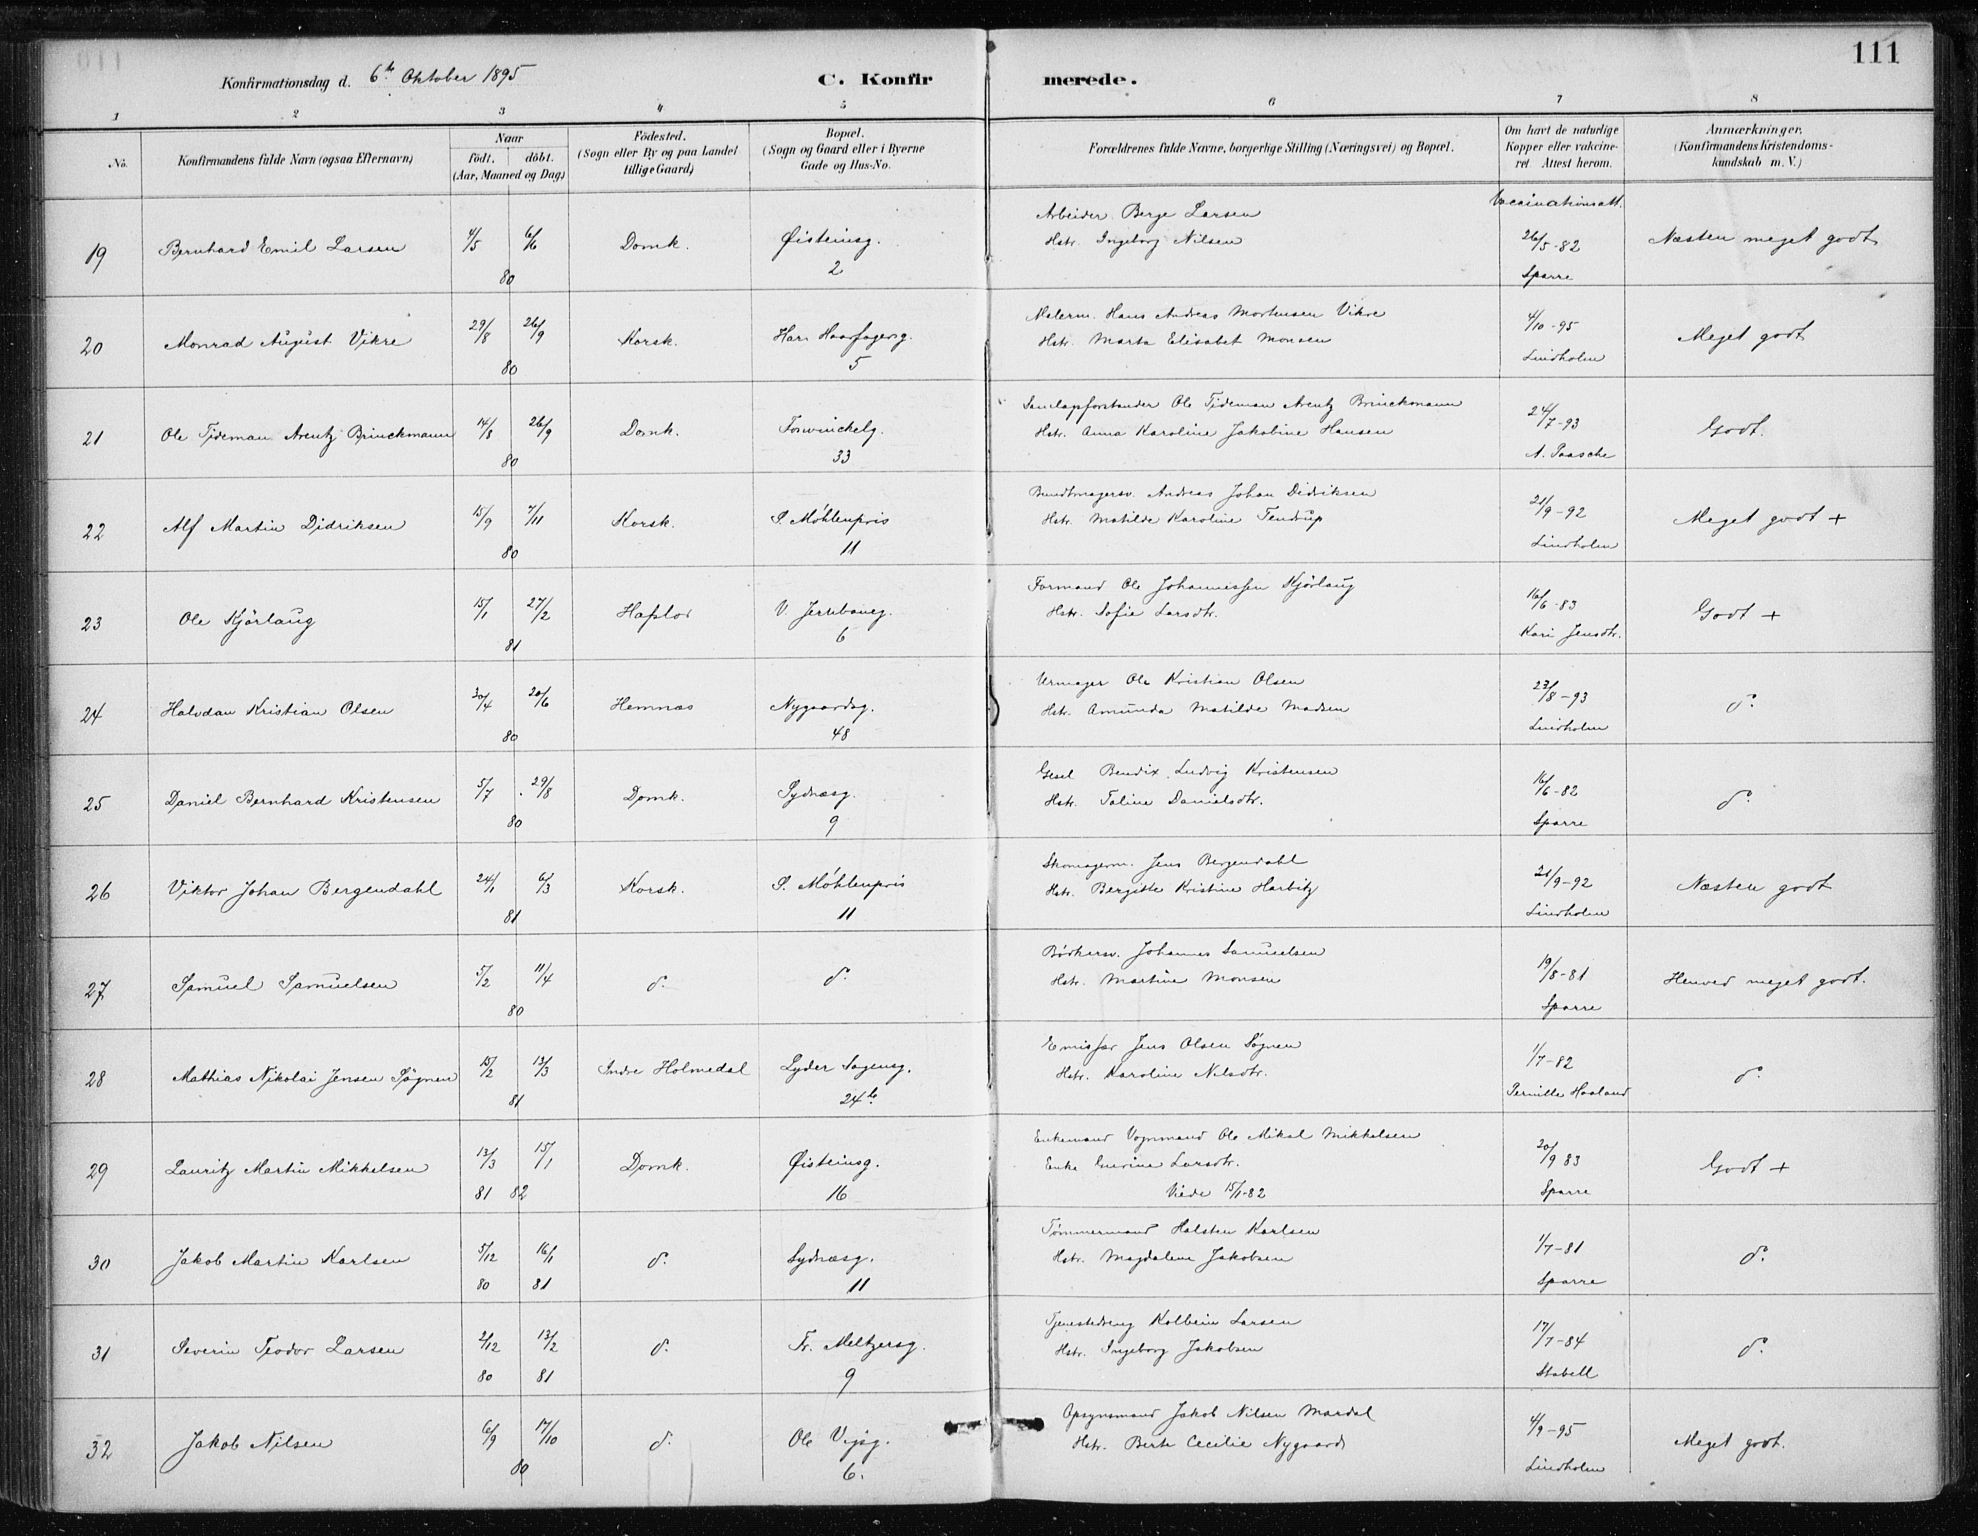 111
Konfirmationsdag d. 6te Oktober 1895
C. Konfirmerede.
1 2 3 4 5 6 7 8
No.
Konfirmandens fulde Navn (ogsaa Efternavn)
Naar
født. døbt.
(Aar, Maaned og Dag)
Fødested.
(Sogn eller By og paa Landet
tillige Gaard)
Bopæl.
(Sogn og Gaard eller i Byerne
Gade og Hus-No.
Forældrenes fulde Navne, borgerlige Stilling (Næringsvei) og Bopæl.
Om havt de naturlige
Kopper eller vakcine-
ret Attest herom.
Anmærkninger,
(Konfirmandens Kristendoms-
kundskab m. V.)
Vaccinationsatt.
19 Bernhard Emil Larsen 4/5 6/6 80 Domk. Øisteinsg. 2
Arbeider Berge Larsen
Hstr. Ingeborg Nilsen
26/5-82 Sparre
Næsten meget godt
20 Monrad August Vikre 29/8 26/9 80 Korsk. Har. Haarfagersg. 5
Malerm. Hans Andreas Mortensen Vikre
Hstr. Marta Elisabet Monsen
4/10-95 Lindholm
Meget godt
21 Ole Tideman Arentz Brinckmann 14/8 26/9 80 Domk. 33
Ole Tideman Arentz Brinckmann
Hstr. Anna Karoline Jakobine Hansen
24/7-93 A. Paasche
Godt.
22 Alf Martin Didriksen 15/9 7/11 80 Korsk. S. Møhlenpris 11
Bundtmagersv. Andreas Johan Didriksen
Hstr. Matilde Karoline Tendrup
21/9-92 Lindholm
Meget godt +
23 Ole Kjørlaug 15/1 27/2 81 Hafslo V. Jernbaneg. 6
Formand Ole Johannessen Kjørlaug
Hstr. Sofie Larsdtr.
16/6-83 Kari Jensdtr.
Godt +
24 Halvdan Kristian Olsen 30/4 20/6 80 Hemnæs Nygaardsg. 48
Urmager Ole Kristian Olsen
Hstr. Amunda Matilde Madsen
23/8-93 Lindholm
do.
25 Daniel Bernhard Kristensen 5/7 29/8 80 Domk. Sydnæsg. 9
Gesel Bendix Ludvig Kristensen
Hstr. Taline Danielsdtr.
16/6-82 Sparre
do.
26 Viktor Johan Bergendahl 24/1 6/3 81 Korsk. S. Møhlenpris 11
Skomagerm. Jens Bergendahl
Hstr. Bergitte Kristine Harbitz
21/9-92 Lindholm
Næsten godt
27 Samuel Samuelsen 5/2 11/4 80 do. do.
Bødkersv. Johannes Samuelsen
Hstr. Martine Monsen
19/8-81 Sparre
Henved meget godt.
28 Mathias Nikolai Jensen Søgnen 15/2 13/3 81 Indre Holmedal Lyder Sagensg. 24b.
Emissær Jens Olsen Søgnen
Hstr. Karoline Nilsdtr.
1/7-82 Pernille Haaland
do.
29 Lauritz Martin Mikkelsen 13/3 81 15/1 82 Domk. Øisteinsg. 16
Enkemand Vognmand Ole Mikal Mikkelsen
Enke Larsdtr.
Viede 15/1-82
20/9 83 Sparre
Godt +
30 Jakob Martin Karlsen 5/12 80 16/1 81 do. Sydnæsg. 11
Tømmermand Halsten Karlsen
Hstr. Magdalene Jakobsen
1/7-81 Sparre
do.
31 Severin Teodor Larsen 2/12 80 13/2 81 do. Fr. Meltzersg. 9
Tjenestedreng Kolbein Larsen
Hstr. Ingeborg Jakobsen
17/7-84 Stabell
do.
32 Jakob Nilsen 6/9 17/10 80 do. Ole Vigsg. 6.
Opsynsmand Jakob Nilsen Mardal
Hstr. Berte Cecilie Nygaard
4/9-95 Lindholm
Meget godt.